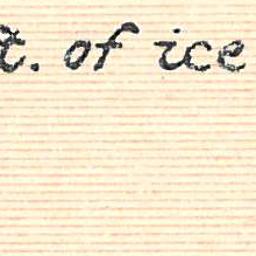 t. of ice